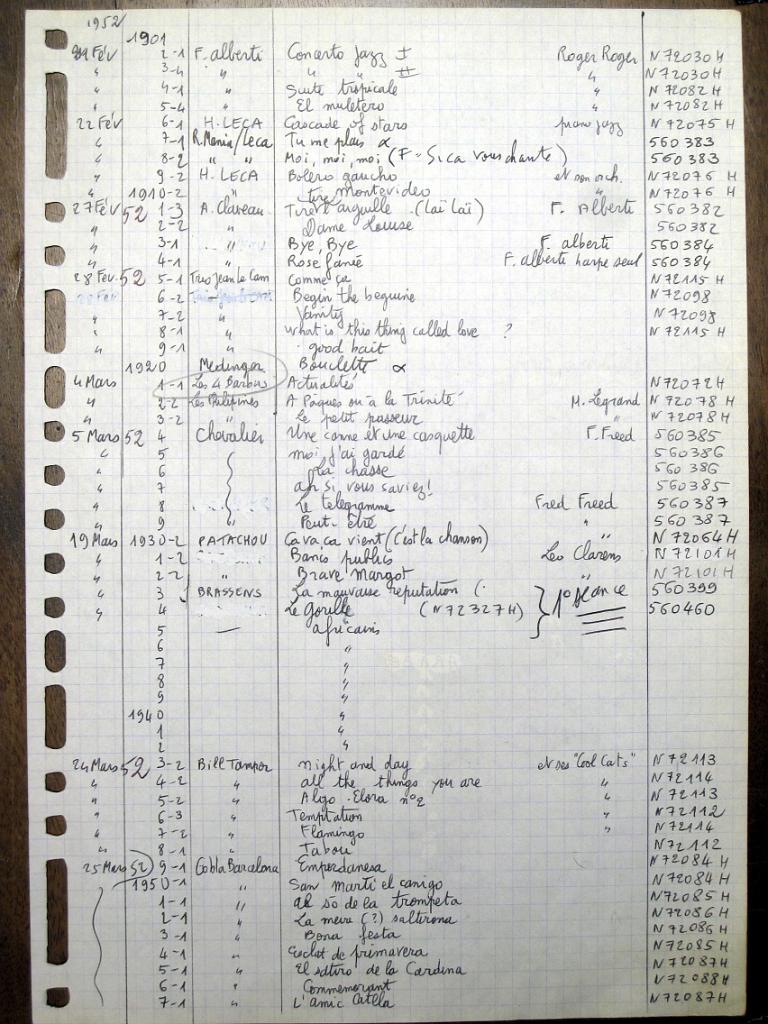 1952
1901
29 Fév 2-1 F. alberti Concerto Jazz I Roger Roger N 72030 H
" 3-4 " " " II " N 72030 H
" 4-1 " Suite tropicale " N 72082 H
" 5-4 " El muletero " N 72082 H
22 Fév 6-1 H. LECA Cascade of stars piano jazz N 72075 H
" 7-1 R. Mania/Leca Tu me plais α 560 383
" 8-2 " " Moi, moi, moi (F = Si ca vous chante) 560 383
" 9-2 H. LECA Bolero gaucho et son orch. N 72076 H
" 1910-2 " Montevideo " N 72076 H
27 Fév 52 1-3 A. Claveau Tire aiguille (Laï Laï) F. Alberti 560382
" 2-2 " Dame Louise 560 382
" 3-1 " Bye, Bye F. alberti 560 384
" 4-1 " Rose fanée F. alberti harpe seul 560 384
28 Fev. 52 5-1 Trio Jean Le Cam Comme ça N 72115 H
28 Fév 6-2 Begin the beguine N 72098
" 7-2 " Vanity N 72098
" 8-1 " What is this thing called love ? N 72115 H
" 9-1 " good bait
1920 Medinger Bouclette α
4 Mars 1-1 Les 4 Barbus Actualités N 72072 H
" 2-2 Les Philipines A Pâques ou à la Trinité M. Legrand N 72078 H
" 3-2 Le petit passeur " N 72078 H
5 Mars 52 4 Chevalier Une canne et une casquette F. Freed 560385
" 5 moi j'ai gardé 560386
" 6 La chasse 560 386
" 7 ah si vous saviez! 560385
" 8 Le telegramme Fred Freed 560 387
" 9 " Peut-être " 560 387
19 Mars 1930-2 PATACHOU Ca va ca vient (c'est la chanson) N 72064 H
" 1-2 Bancs publics Leo Clarens N 72101 H
" 2-2 " Brave Margot " N 72101 H
" 3 BRASSENS La mauvaise reputation ( 1° séance 560399
" 4 Le gorille (N 72327 H) 560460
5 — africains
6 "
7 "
8 "
9 "
1940 "
1 "
2 "
24 Mars 52 3-2 Bill Tamper night and day et ses "Cool Cats" N 72113
" 4-2 " all the things you are " N 72114
" 5-2 " Algo Elora n°2 " N 72113
" 6-3 " Temptation " N 72112
" 7-2 " Flamingo " N 72114
" 8-1 " Tabou N 72112
25 Mars 52 9-1 Cobla Barcelona Empordanesa N 72084 H
1950-1 " San Marti el canigo N 72084 H
1-1 " al so de la trompeta N 72085 H
2-1 " La meva (?) salterona N 72086 H
3-1 " Bona festa N 72086 H
4-1 " Esclat de primavera N 72085 H
5-1 " El saltiro de la Cardina N 72087 H
6-1 " Commemorant N 72088 H
7-1 " L'amic Catlla N 72087 H